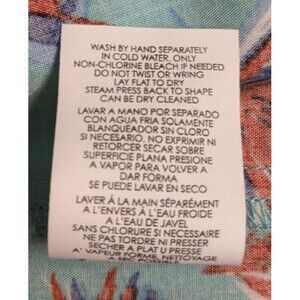 WASH BY HAND SEPARATELY
IN COLD WATER, ONLY
NON-CHLORINE BLEACH IF NEEDED
DO NOT TWIST OR WRING
LAY FLAT TO DRY
STEAM PRESS BACK TO SHAPE
CAN BE DRY CLEANED
LAVAR A MANO POR SEPARADO
CON AGUA FRIA SOLAMENTE
BLANQUEADOR SIN CLORO
SI NECESARIO, NO EXPRIMIR NI
RETORCER SECAR SOBRE
SUPERFICIE PLANA PRESIONE
A VAPOR PARA VOLVER A
DAR FORMA
SE PUEDE LAVAR EN SECO
LAVER À LA MAIN SÉPARÉMENT
A L'ENVERS À L'EAU FROIDE
A L'EAU DE JAVEL
SANS CHLORURE SI NÉCESSAIRE
NE PAS TORDRE NI PRESSER
SECHER A PLAT U PRESSER
A' VAPEUR FORME, NETTOYAGE